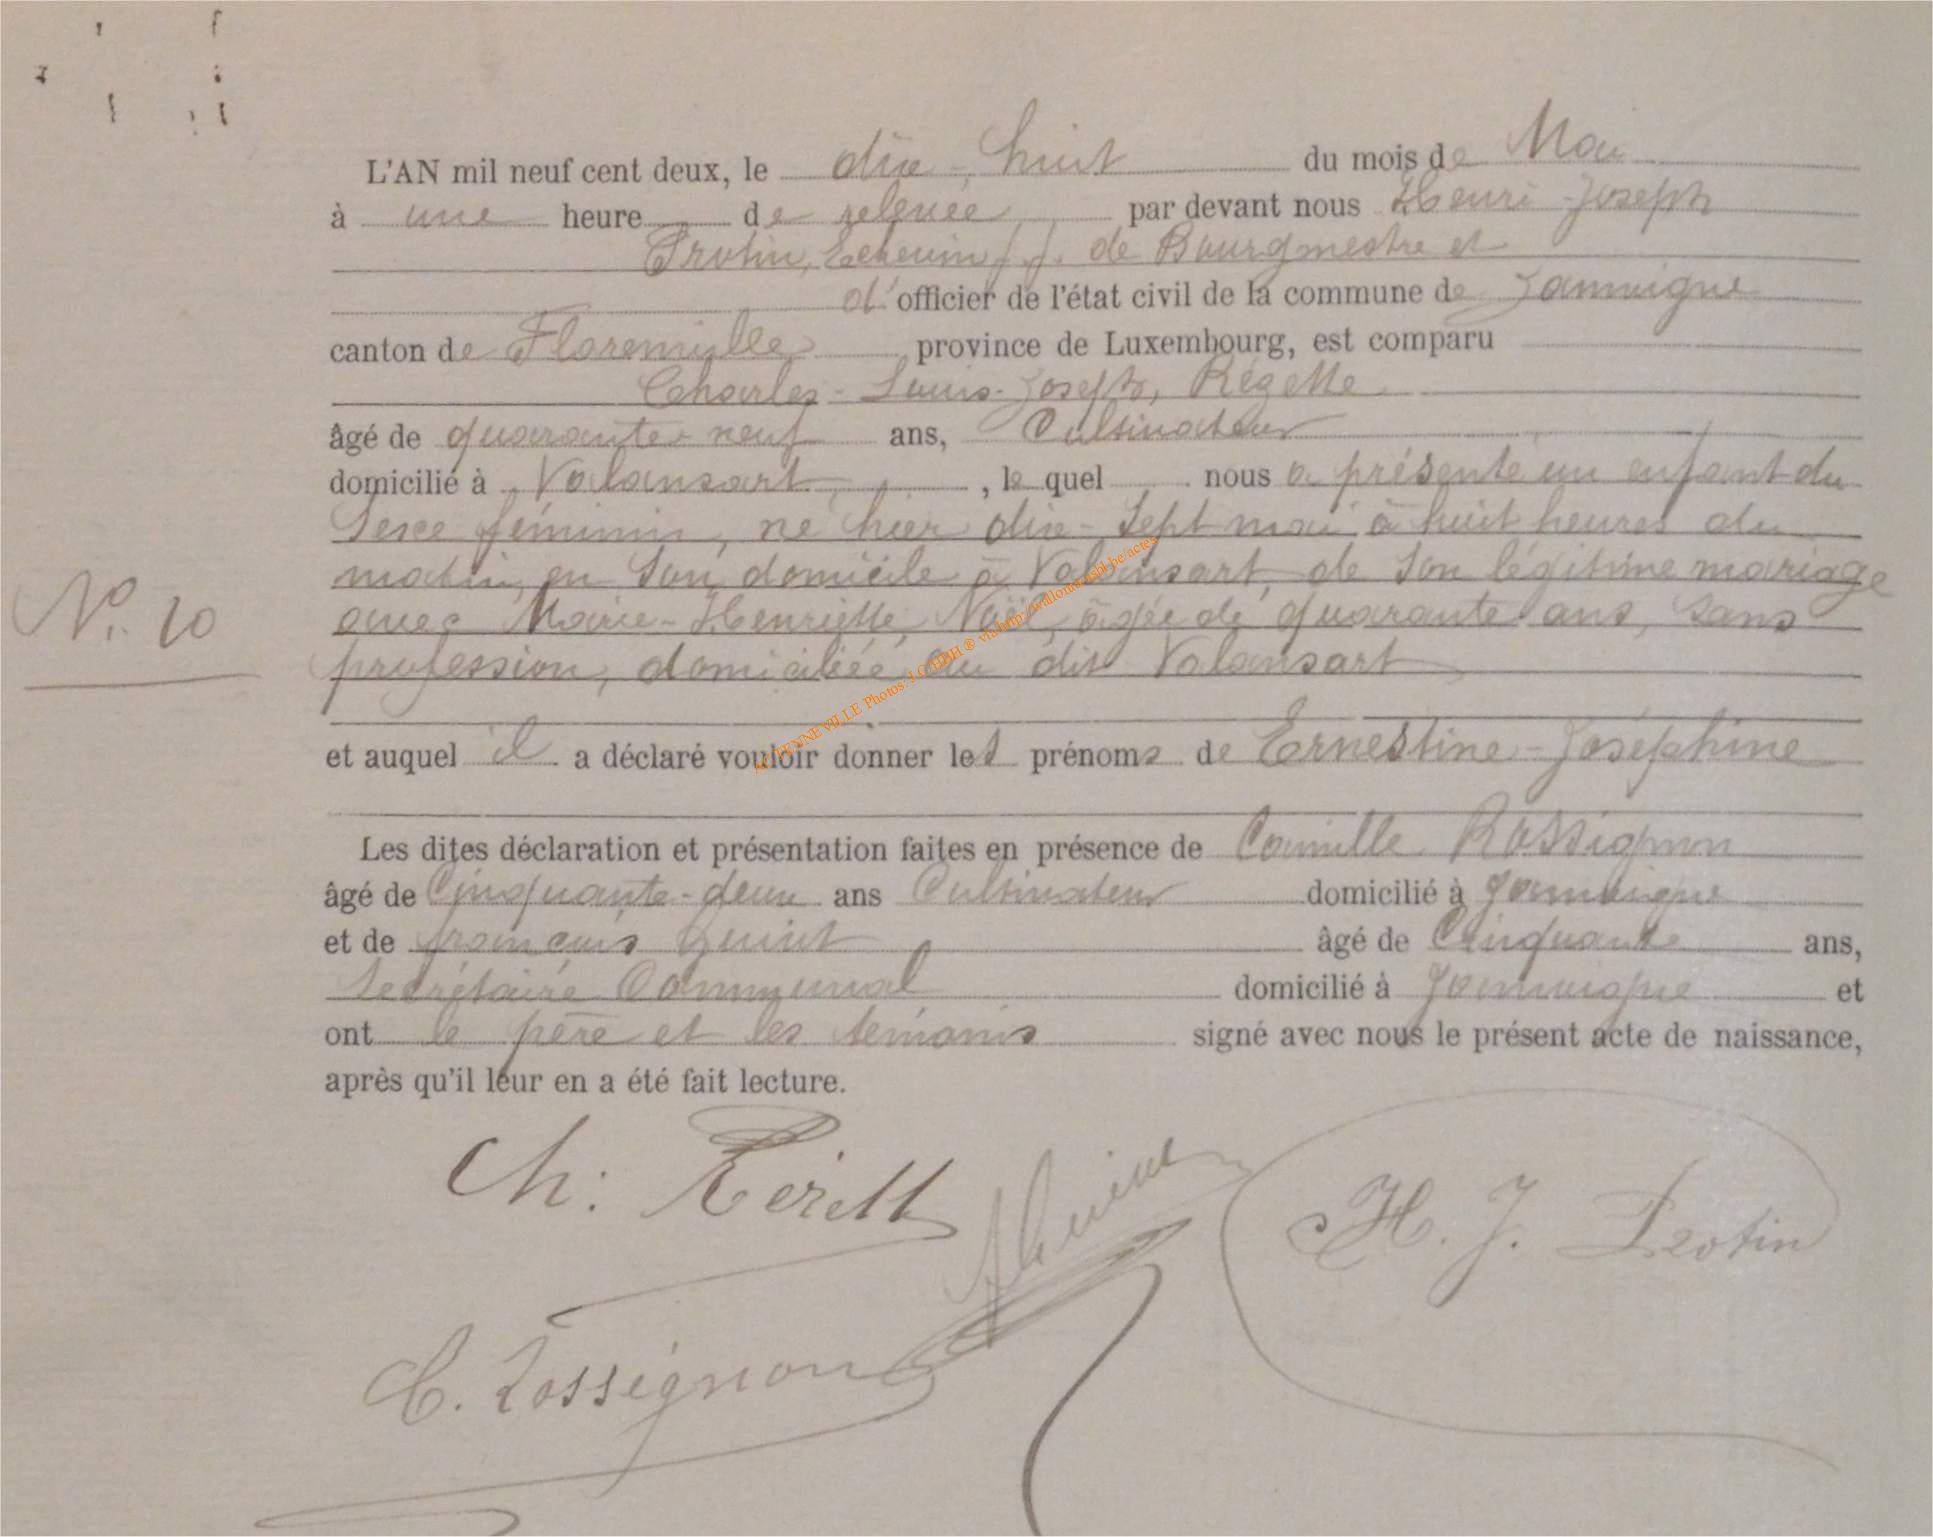 L'AN mil neuf cent deux, le dix-huit du mois de Mai
à une heure de relevée par devant nous Henri-Joseph
Protin, Echevin f.f. de Bourgmestre et
d'officier de l'état civil de la commune de Jamoigne
canton de Florenville province de Luxembourg, est comparu
Charles-Louis-Joseph, Régette
âgé de quarante-neuf ans, Cultivateur
domicilié à Valansart, le quel nous a présenté un enfant du
Sexe féminin, né hier dix-Sept mai à huit heures du
matin, en Son domicile à Valansart, de Son légitime mariage
avec Marie-Henriette, Noël, âgée de quarante ans, Sans
N° 10
profession, domiciliée au dit Valansart
et auquel il a déclaré vouloir donner les prénoms de Ernestine-Joséphine
Les dites déclaration et présentation faites en présence de Camille Rossignon
âgé de Cinquante-deux ans Cultivateur domicilié à Jamoigne
et de françois Guiot âgé de Cinquante ans,
Secrétaire Communal domicilié à Jamoigne et
ont le père et les témoins signé avec nous le présent acte de naissance,
après qu'il leur en a été fait lecture.
Ch:
H. J. Protin
C. Rossignon
TENNEVILLE Photos: J.G. HBH ® via http://wallonia-asbl.be/actes